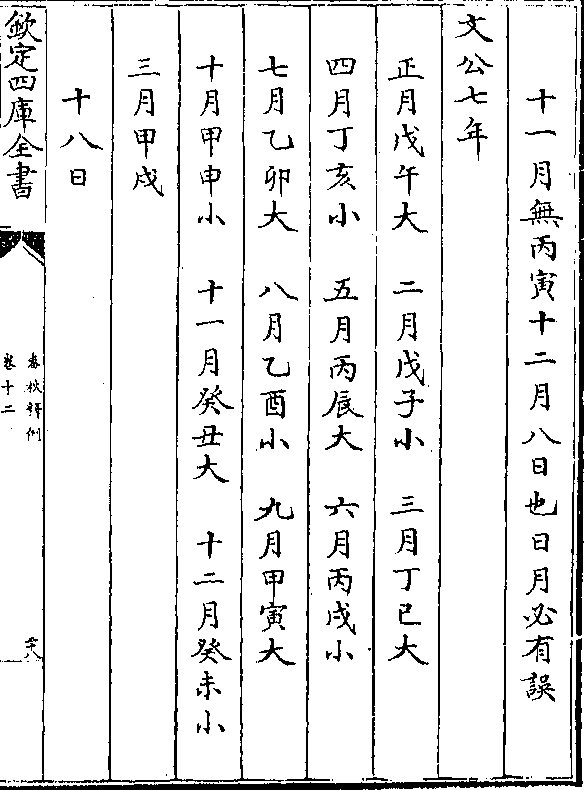 十一月無丙寅十二月八日也日月必有誤
文公七年
正月戊午大　二月戊子小　三月丁巳大
四月丁亥小　五月丙辰大　六月丙戌小
七月乙卯大　八月乙酉小　九月甲寅大
十月甲申小　十一月癸丑大　十二月癸未小
三月甲戌
十八日
欽定四庫全書
春秋釋例
卷十二